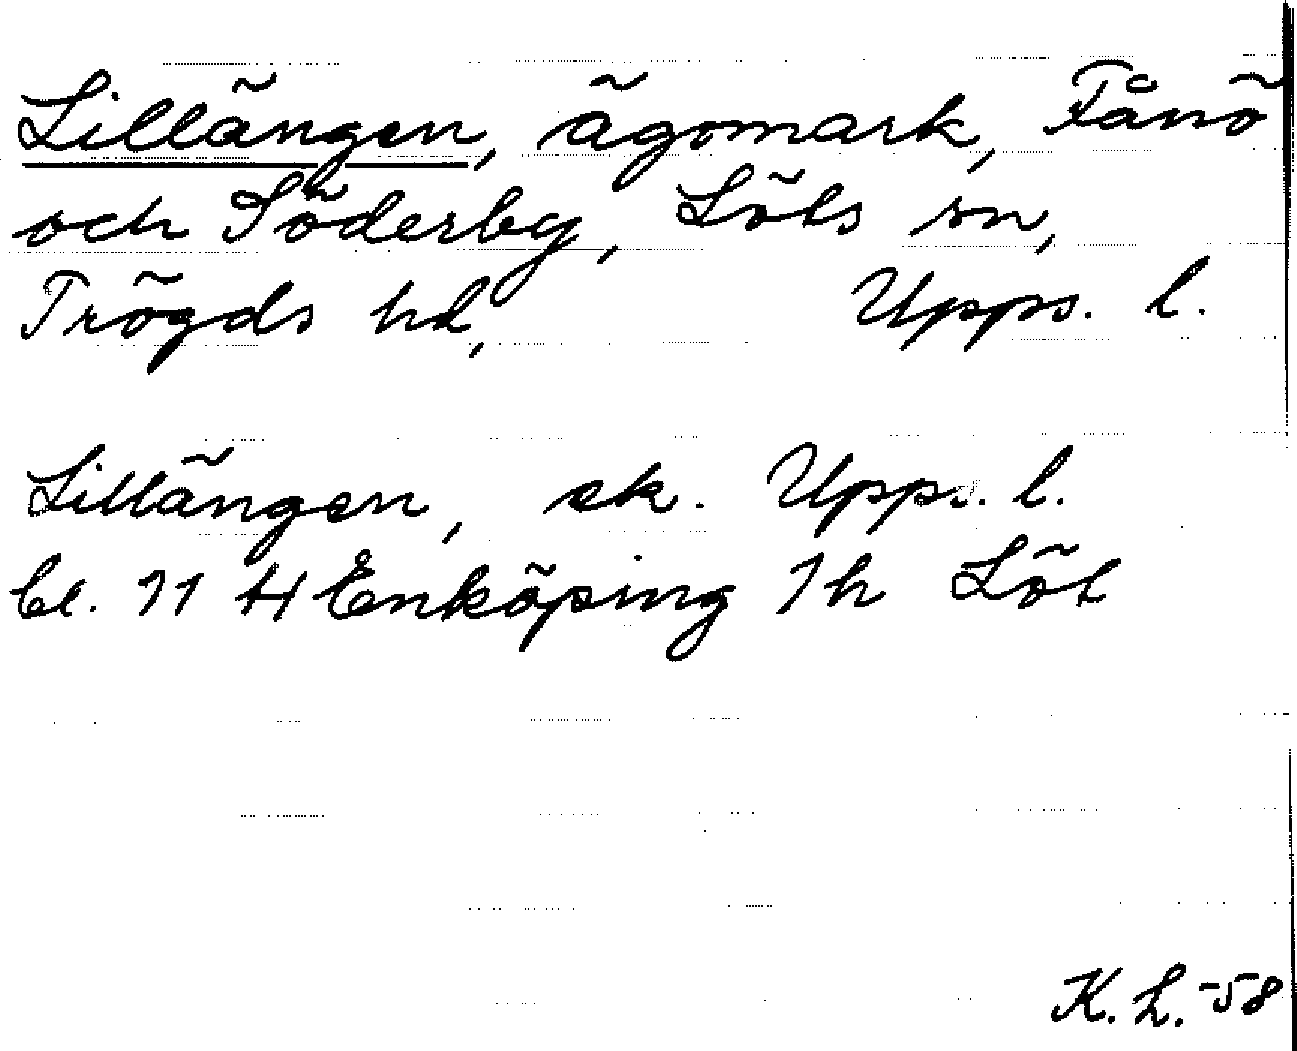 Lillängen, ägomark, Fånö
och Söderby, Löts sn,
Trögds hd, Upps. l.
Lillängen, ek. Upps. l.
bl. 11 H Enköping 1h Löt
K. L. -58